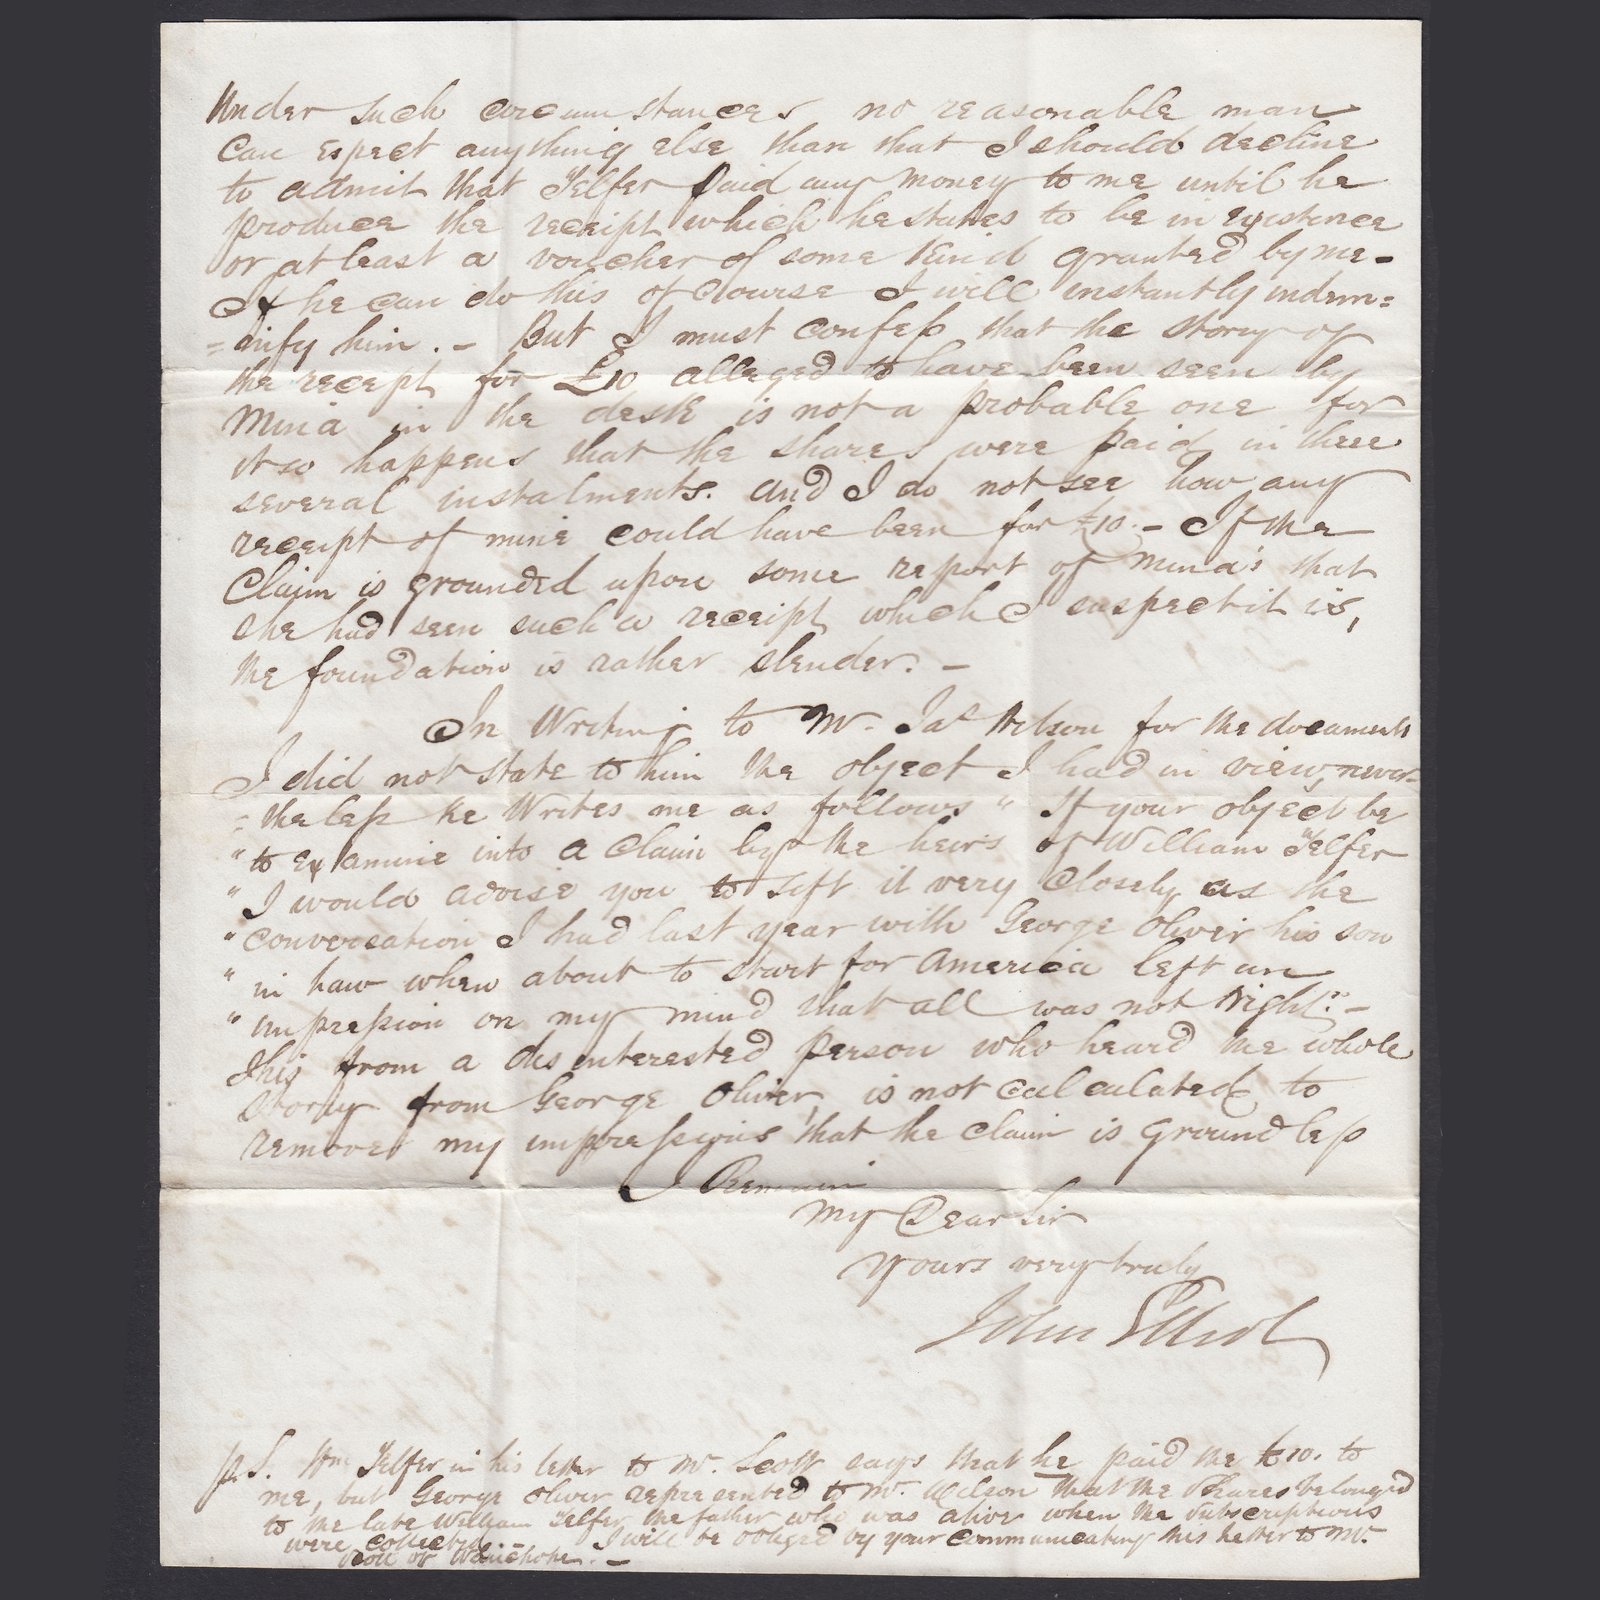 Under such circumstances no reasonable man
can expect anything else than that I should decline
to admit that Telfer paid any money to me until he
produce the receipt which he states to be in existence
or at least a voucher of some kind granted by me -
If he can do this of course I will instantly indem=
=nify him. - But I must confess that the story of
the receipt for £10 alleged to have been seen by
Mina in the desk is not a probable one for
it so happens that the shares were paid in three
several instalments. and I do not see how any
receipt of mine could have been for £10. - If the
Claim is grounded upon some report of Mina's that
she had seen such a receipt which I suspect it is,
the foundation is rather slender. -
In Writing to Mr. Jas Wilson for the documents
I did not state to him the object I had in view, never-
=theless he Writes me as follows " If your object be
" to examine into a Claim by the heirs of William Telfer
" I would advise you to sift it very closely as the
" conversation I had last year with George Oliver his son
" in law when about to start for America left an
" impression on my mind that all was not right." -
This from a disinterested person who heard the whole
story from George Oliver, is not calculated to
remove my impressions that the claim is groundless
I Remain
My Dear Sir
Yours very truly
John Elliot
P.S. Wm Telfer in his letter to Mr. Scott says that he paid the £10. to
me, but George Oliver represented to Mr. Wilson that the Shares belonged
to the late William Telfer the father who was alive when the subscriptions
were collected - I will be obliged by your communicating this letter to Mr.
Scott of -